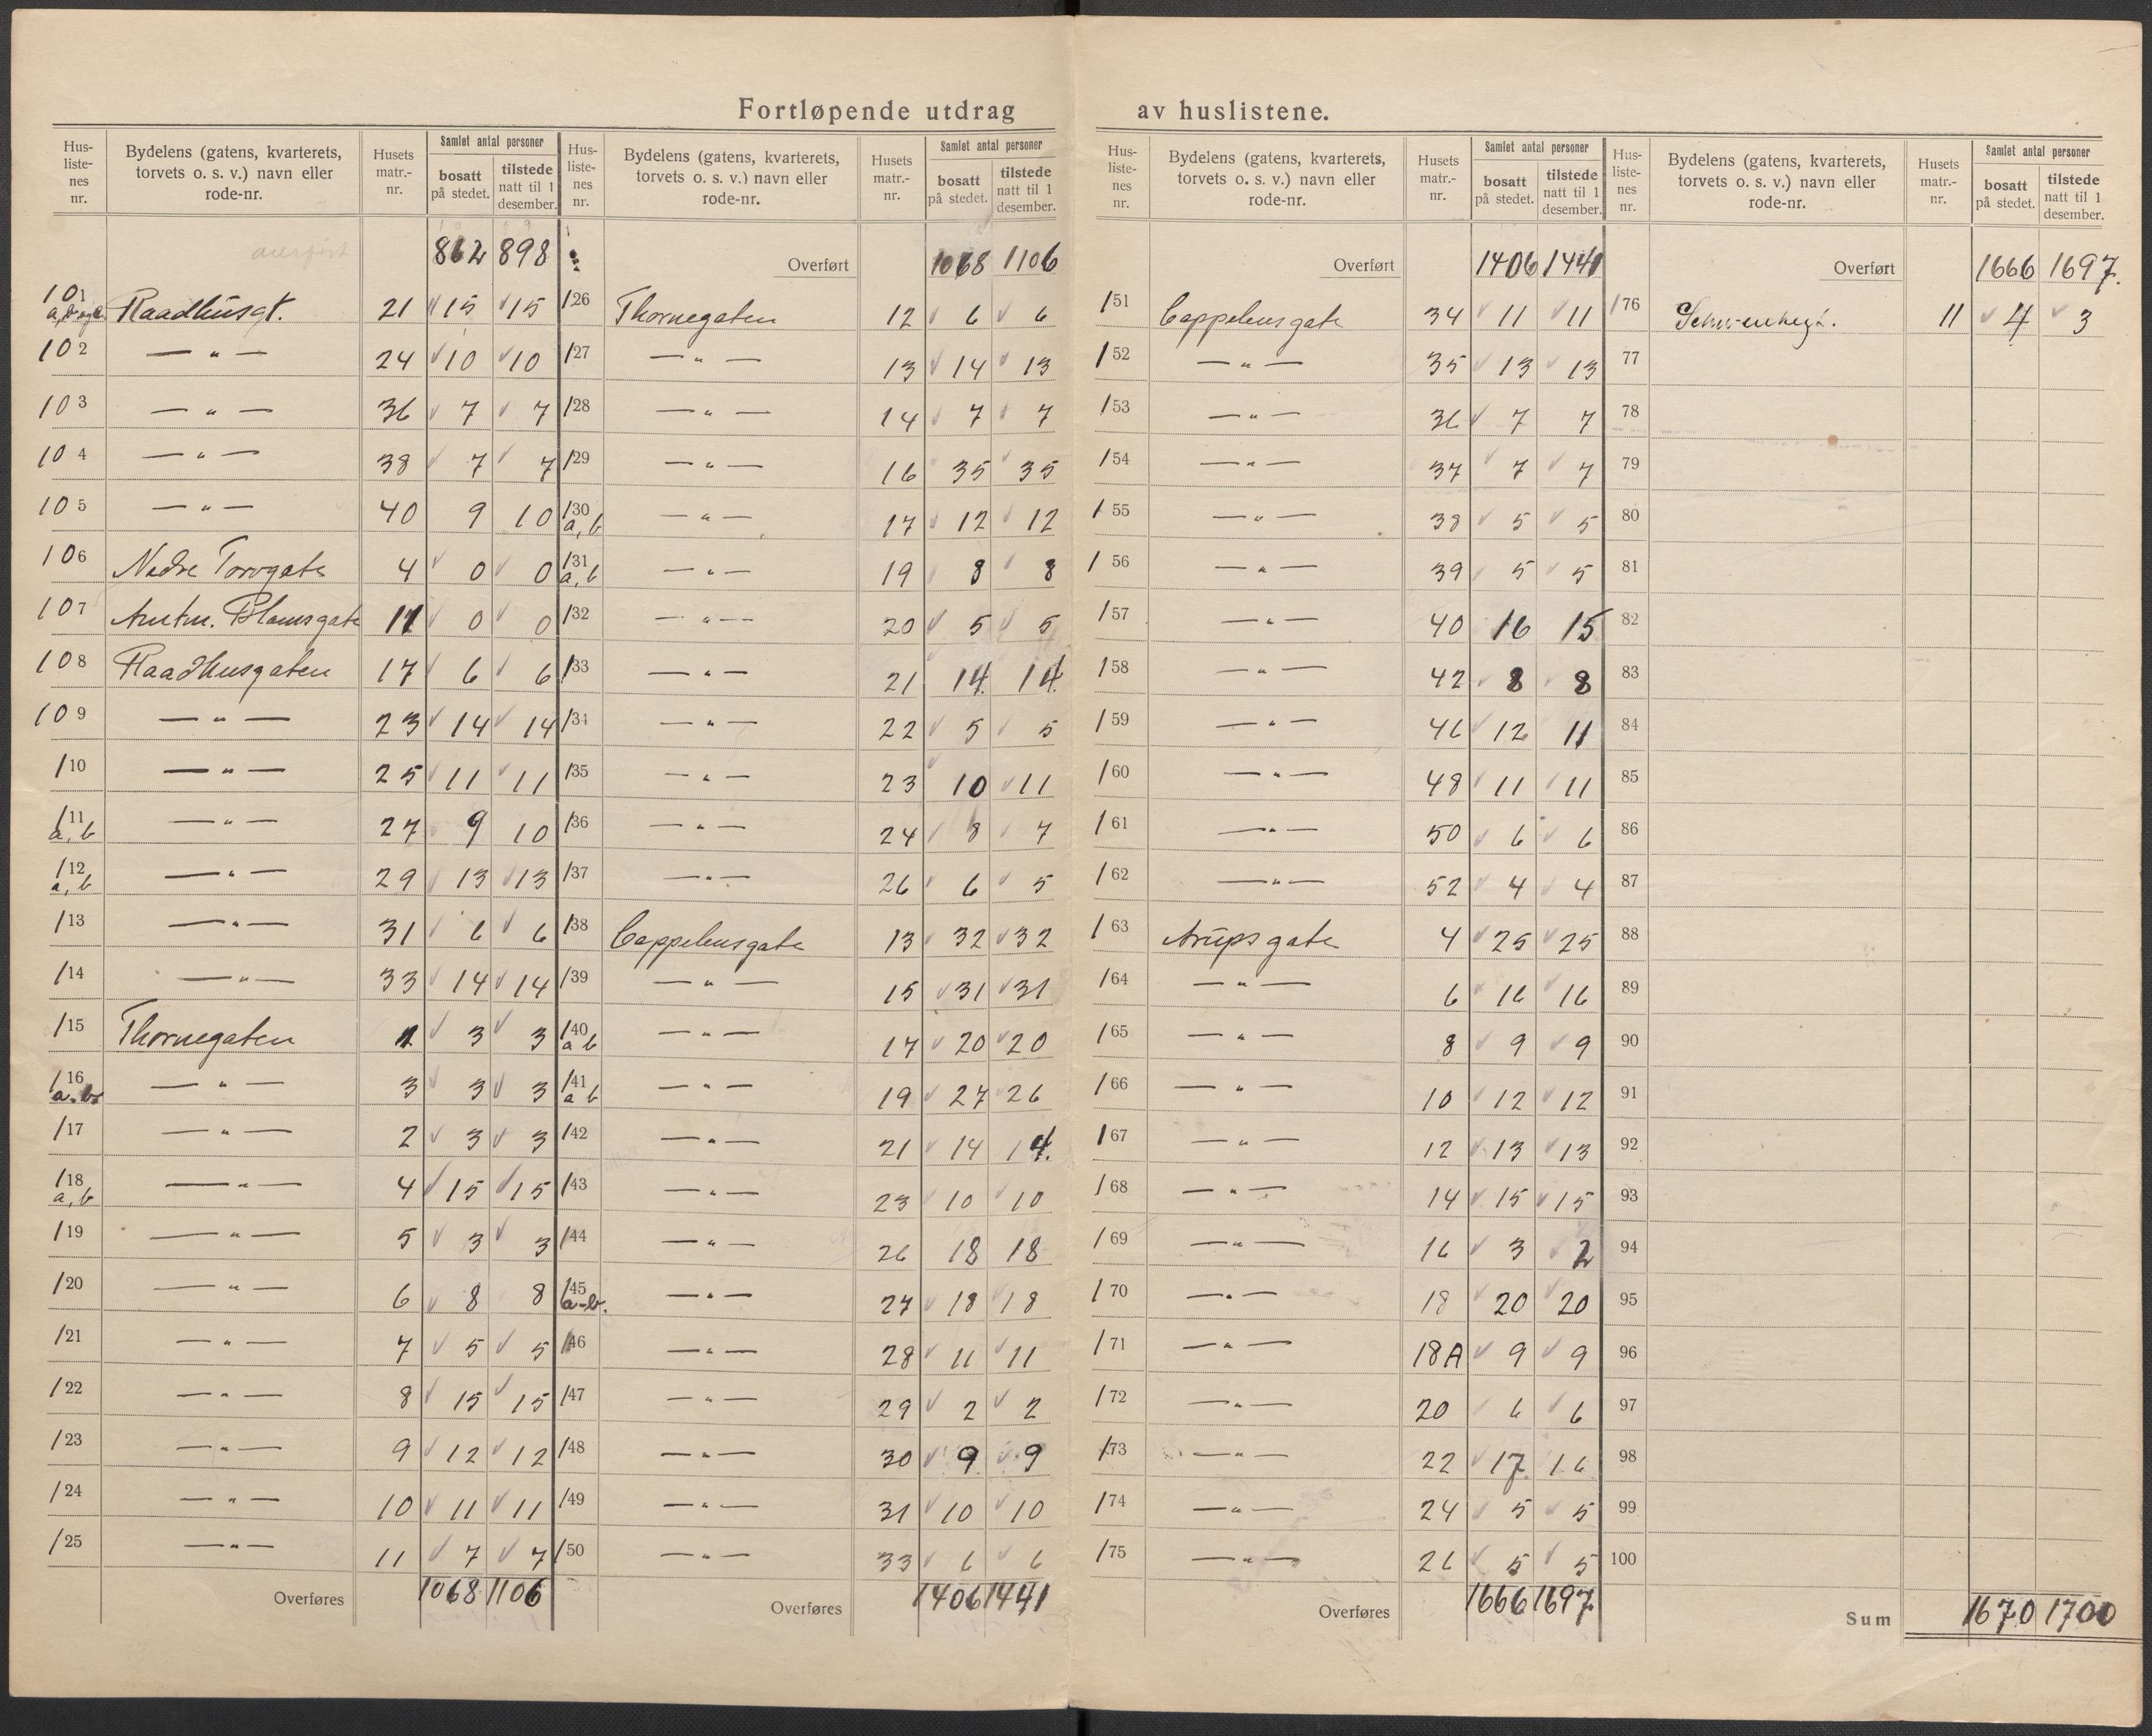 Fortløpende utdrag av huslistene.
Hus-liste-nes nr. Bydelens (gatens, kvarterets, torvets o. s. v.) navn eller rode-nr. Husets matr.-nr. Samlet antal personer bosatt på stedet. tilstede natt til 1 desember.
overført 862 898
101 Raadhusgt. 21 15 15
102 — „ — 24 10 10
103 — „ — 36 7 7
104 — „ — 38 7 7
105 — „ — 40 9 10
106 Nedre Torvgate 4 0 0
107 Amtm. Blomsgate 11 0 0
108 Raadhusgaten 17 6 6
109 — „ — 23 14 14
110 — „ — 25 11 11
111 a, b — „ — 27 9 10
112 a, b — „ — 29 13 13
113 — „ — 31 6 6
114 — „ — 33 14 14
115 Thornegaten 1 3 3
116 a. b. — „ — 3 3 3
117 — „ — 2 3 3
118 a, b — „ — 4 15 15
119 — „ — 5 3 3
120 — „ — 6 8 8
121 — „ — 7 5 5
122 — „ — 8 15 15
123 — „ — 9 12 12
124 — „ — 10 11 11
125 — „ — 11 7 7
Overføres 1068 1106
Hus-liste-nes nr. Bydelens (gatens, kvarterets, torvets o. s. v.) navn eller rode-nr. Husets matr.-nr. Samlet antal personer bosatt på stedet. tilstede natt til 1 desember.
Overført 1068 1106
126 Thornegaten 12 6 6
127 — „ — 13 14 13
128 — „ — 14 7 7
129 — „ — 16 35 35
130 a, b — „ — 17 12 12
131 a, b — „ — 19 8 8
132 — „ — 20 5 5
133 — „ — 21 14 14
134 — „ — 22 5 5
135 — „ — 23 10 11
136 — „ — 24 8 7
137 — „ — 26 6 5
138 Cappelensgate 13 32 32
139 — „ — 15 31 31
140 a b — „ — 17 20 20
141 a b — „ — 19 27 26
142 — „ — 21 14 14.
143 — „ — 23 10 10
144 — „ — 26 18 18
145 a-b. — „ — 27 18 18
146 — „ — 28 11 11
147 — „ — 29 2 2
148 — „ — 30 9 9
149 — „ — 31 10 10
150 — „ — 33 6 6
Overføres 1406 1441
Hus-liste-nes nr. Bydelens (gatens, kvarterets, torvets o. s. v.) navn eller rode-nr. Husets matr.-nr. Samlet antal personer bosatt på stedet. tilstede natt til 1 desember.
Overført 1406 1441
151 Cappelensgate 34 11 11
152 — „ — 35 13 13
153 — „ — 36 7 7
154 — „ — 37 7 7
155 — „ — 38 5 5
156 — „ — 39 5 5
157 — „ — 40 16 15
158 — „ — 42 8 8
159 — „ — 46 12 11
160 — „ — 48 11 11
161 — „ — 50 6 6
162 — „ — 52 4 4
163 Arupsgate 4 25 25
164 — „ — 6 16 16
165 — „ — 8 9 9
166 — „ — 10 12 12
167 — „ — 12 13 13
168 — „ — 14 15 15
169 — „ — 16 3 2
170 — „ — 18 20 20
171 — „ — 18A 9 9
172 — „ — 20 6 6
173 — „ — 22 17 16
174 — „ — 24 5 5
175 — „ — 26 5 5
Overføres 1666 1697
Hus-liste-nes nr. Bydelens (gatens, kvarterets, torvets o. s. v.) navn eller rode-nr. Husets matr.-nr. Samlet antal personer bosatt på stedet. tilstede natt til 1 desember.
Overført 1666 1697.
176 11 4 3
77
78
79
80
81
82
83
84
85
86
87
88
89
90
91
92
93
94
95
96
97
98
99
100
Sum 1670 1700